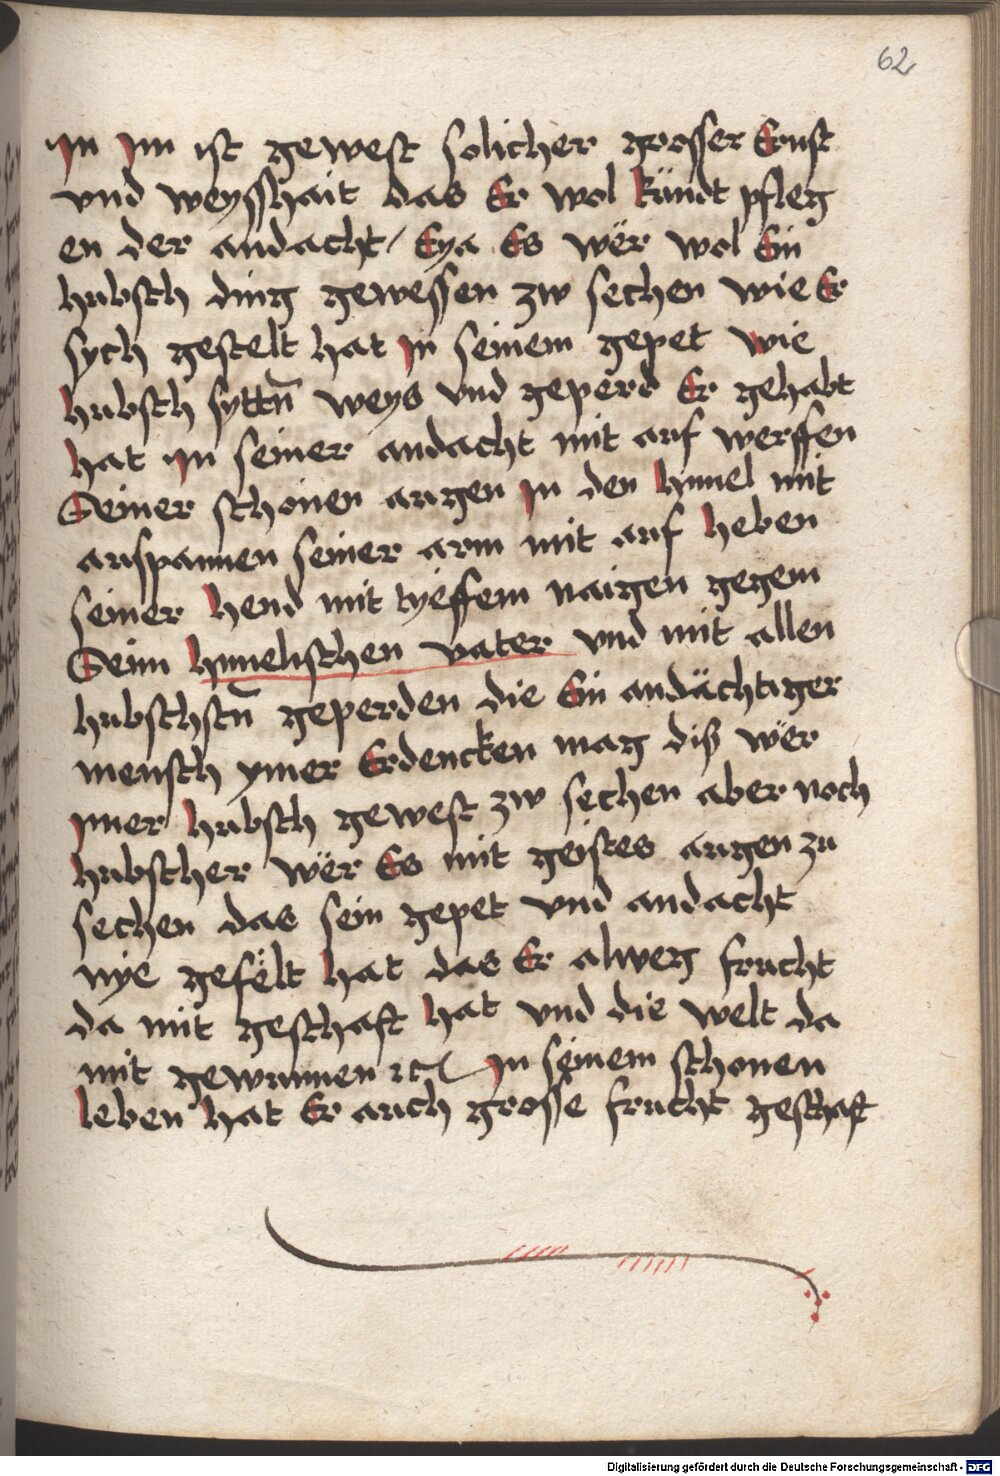 62
in im ist gewest solicher grosser Ernst
vnd weysshait das Er wol kündt pfleg
en der andacht / Eya Es wër wol Ein
hubsch ding gewessen zw sechen wie Er
sych gestelt hat in seinem gepet wie
hubsch syttn̄ weys vnd geperd Er gehabt
hat in seiner andacht mit auf werffen
Seiner schonen augen in den himel mit
auspannen seiner arm mit auf heben
seiner hend mit tyeffem naigen gegem
Seim himelischen vater vnd mit allen
hubschstn̄ geperden die Ein andächtiger
mensch ymer Erdencken mag diß wër
imer hubsch gewest zw sechen aber noch
hubscher wër Es mit geistes augen zu
sechen das sein gepet vnd andacht
nye gefëlt hat das Er alweg frucht
da mit geschaft hat vnd die welt da
mit gewunnen ꝛc in seinem schonen
leben hat Er auch grosse frucht geschaft
Digitalisierung gefördert durch die Deutsche Forschungsgemeinschaft - DFG